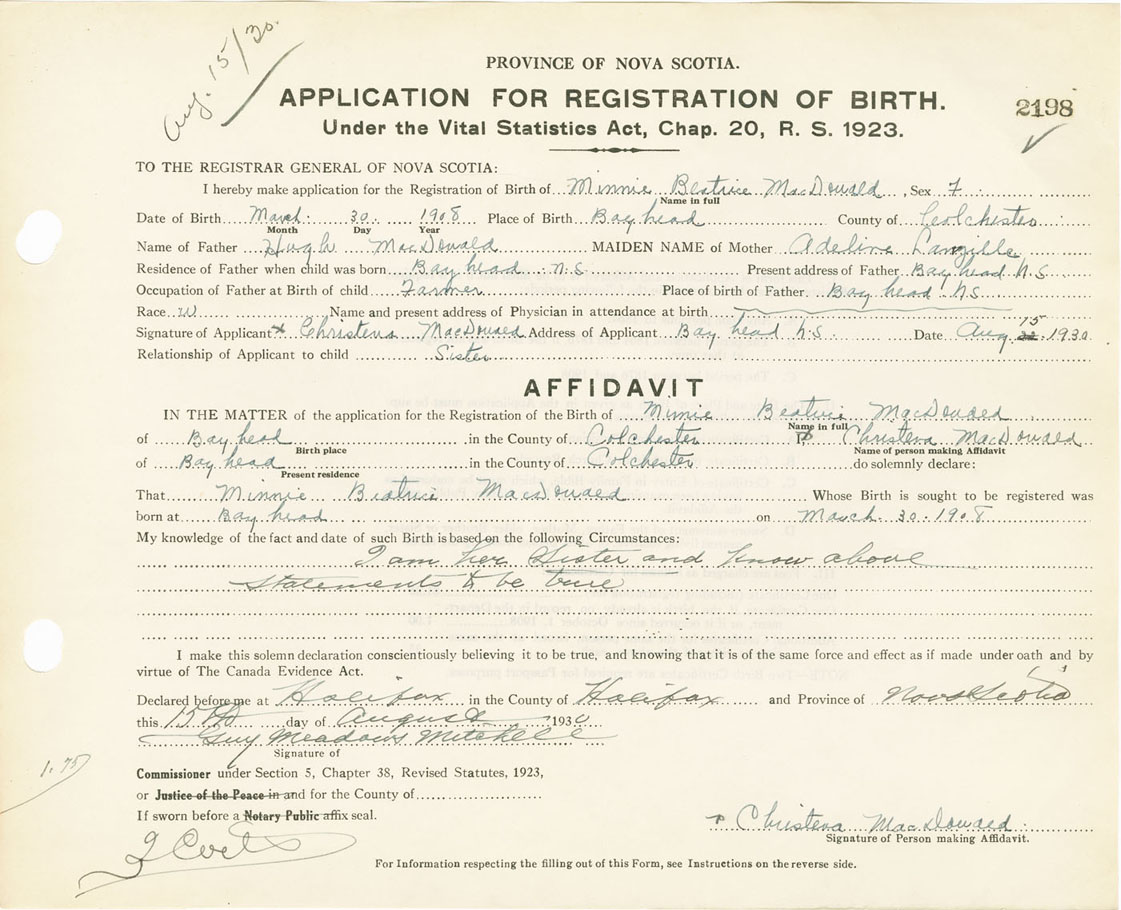 Aug. 15/30.
PROVINCE OF NOVA SCOTIA.
APPLICATION FOR REGISTRATION OF BIRTH.
2198
Under the Vital Statistics Act, Chap. 20, R. S. 1923.
TO THE REGISTRAR GENERAL OF NOVA SCOTIA:
I hereby make application for the Registration of Birth of Minnie Beatrice MacDonald, Sex F.
Name in full
Date of Birth March 30 1908 Place of Birth Bay head County of Colchester
Month Day Year
Name of Father Hugh MacDonald MAIDEN NAME of Mother Adeline Langille
Residence of Father when child was born Bay head N.S. Present address of Father Bay head N.S
Occupation of Father at Birth of child Farmer Place of birth of Father Bay head N.S
Race W Name and present address of Physician in attendance at birth
Signature of Applicant x Christena MacDonald Address of Applicant Bay head N.S. Date Aug 15 1930
Relationship of Applicant to child Sister
AFFIDAVIT
IN THE MATTER of the application for the Registration of the Birth of Minnie Beatrice MacDonald
Name in full
of Bay head in the County of Colchester I, Christena MacDonald
Birth place Name of person making Affidavit
of Bay head in the County of Colchester do solemnly declare:
Present residence
That Minnie Beatrice MacDonald Whose Birth is sought to be registered was
born at Bay head on March 30 1908
My knowledge of the fact and date of such Birth is based on the following Circumstances:
I am her Sister and know above
statements to be true
I make this solemn declaration conscientiously believing it to be true, and knowing that it is of the same force and effect as if made under oath and by
virtue of The Canada Evidence Act.
Declared before me at Halifax in the County of Halifax and Province of Nova Scotia
this 15th day of August 1930
Guy Meadows Mitchell
Signature of
1.75
Commissioner under Section 5, Chapter 38, Revised Statutes, 1923,
or Justice of the Peace in and for the County of
If sworn before a Notary Public affix seal.
Christena MacDonald
Signature of Person making Affidavit.
For Information respecting the filling out of this Form, see Instructions on the reverse side.